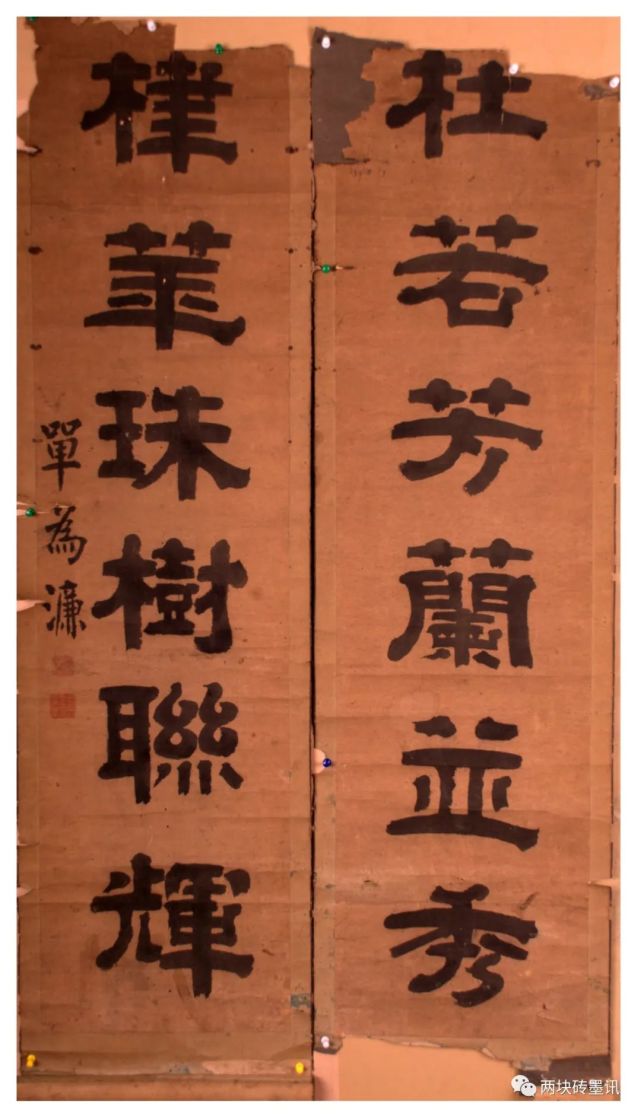 杜若芳蘭並秀
棣華珠樹聯輝
單為濂
两块砖墨讯